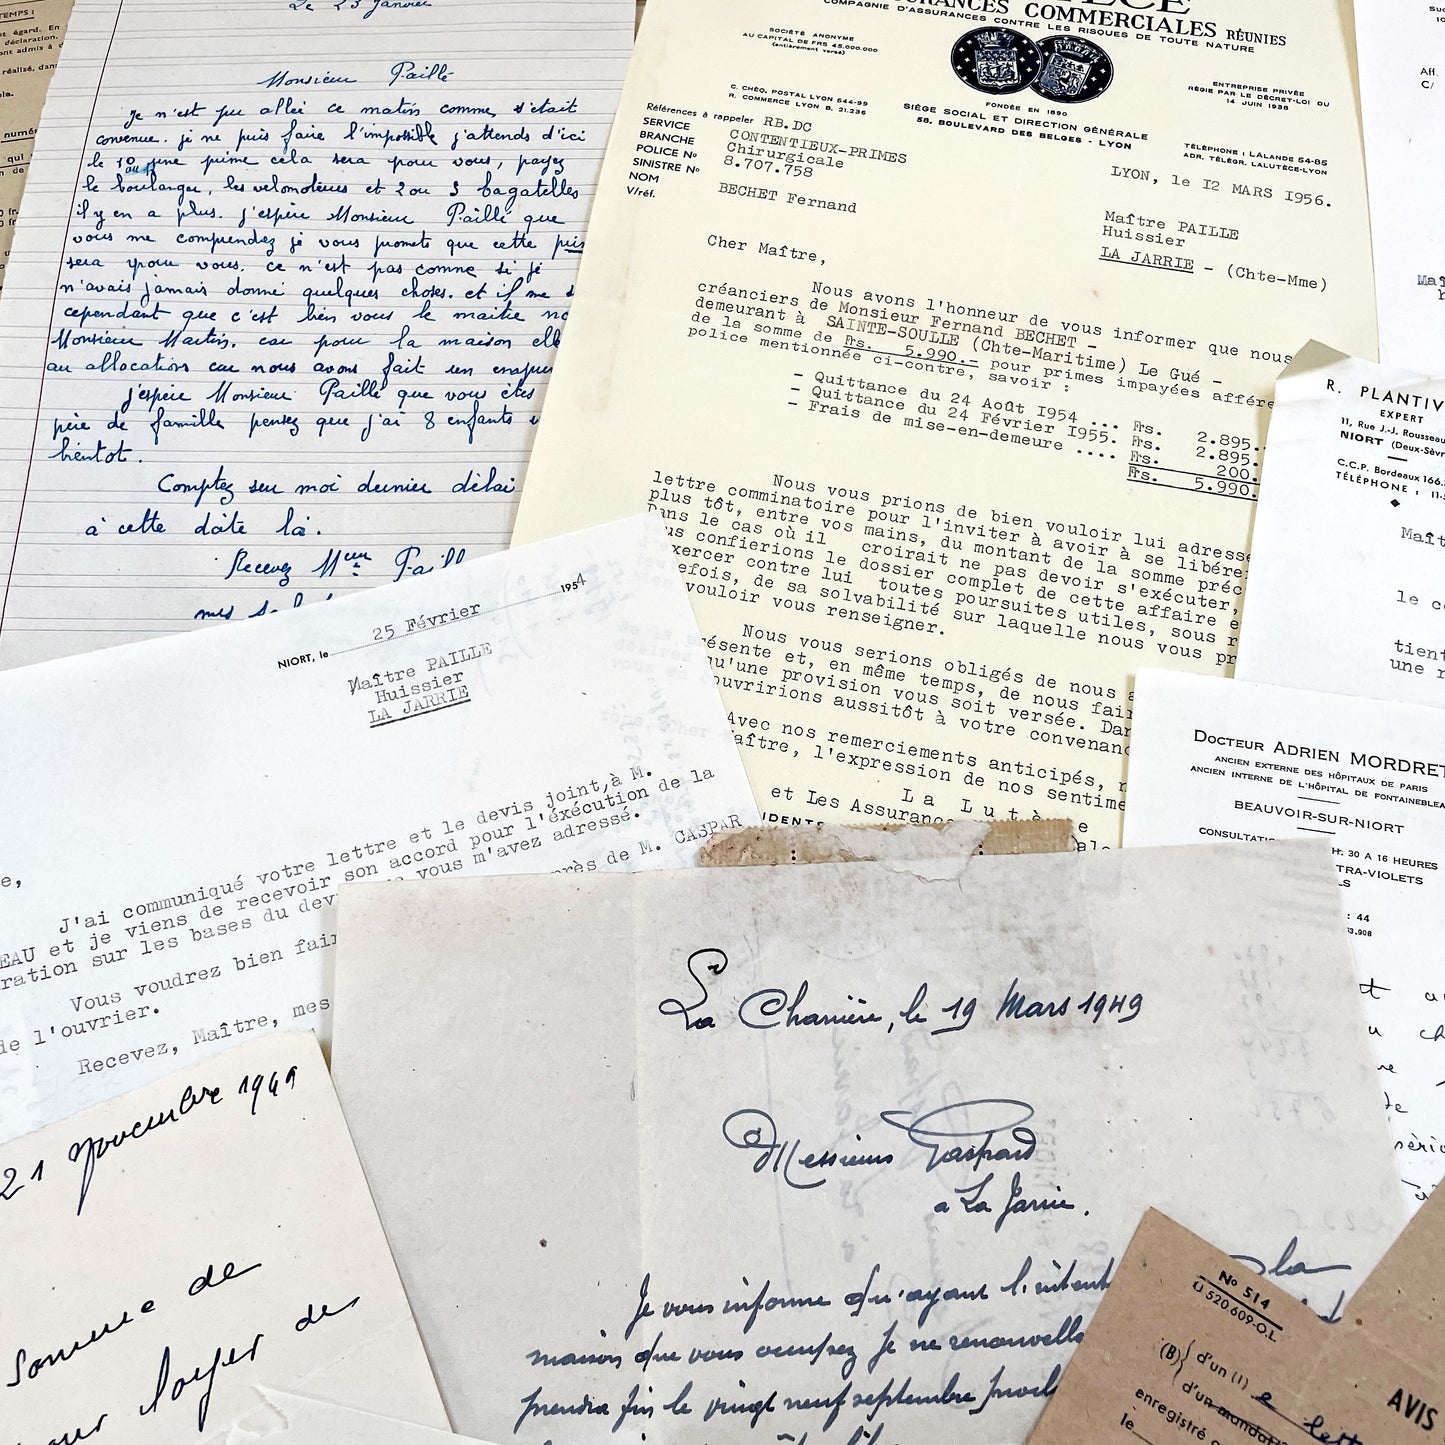 TEMPS :
Le 23 Janvier
Monsieur Paillé
Je n'est pu allei ce matin comme s'etait
convenue. je ne puis faire l'impossible j'attends d'ici
le 10 une prime cela sera pour vous, payez
au 15
le boulanger, les velomoteurs et 2 ou 3 bagatelles
il y en a plus. j'espère Monsieur Paillé que
vous me comprendez je vous promets que cette
sera pour vous. ce n'est pas comme si je
n'avais jamais donné quelques choses. et il me
cependant que c'est bien vous le maitre
Monsieur Martin, car pour la maison
au allocations car nous avons fait un
j'espère Monsieur Paillé que vous êtes
père de famille pensez que j'ai 8 enfants
bientot.
Comptez sur moi dernier délai
à cette dâte là.
Recevez Mr Paill
mes
ASSURANCES COMMERCIALES RÉUNIES
COMPAGNIE D'ASSURANCES CONTRE LES RISQUES DE TOUTE NATURE
SOCIÉTÉ ANONYME
AU CAPITAL DE FRS 45.000.000
(entièrement versé)
C. CHÉQ. POSTAL LYON 644-99
R. COMMERCE LYON B. 21.236
FONDÉE EN 1890
SIÈGE SOCIAL ET DIRECTION GÉNÉRALE
58, BOULEVARD DES BELGES - LYON
ENTREPRISE PRIVÉE
RÉGIE PAR LE DÉCRET-LOI DU
14 JUIN 1938
TÉLÉPHONE : LALANDE 54-85
ADR. TÉLÉGR. LALUTÈCE-LYON
Références à rappeler RB.DC
SERVICE CONTENTIEUX-PRIMES
BRANCHE Chirurgicale
POLICE No 8.707.758
SINISTRE No
NOM BECHET Fernand
V/réf.
LYON, le 12 MARS 1956.
Maître PAILLE
Huissier
LA JARRIE - (Chte-Mme)
Cher Maître,
Nous avons l'honneur de vous informer que nous
créanciers de Monsieur Fernand BECHET -
demeurant à SAINTE-SOULLE (Chte-Maritime) Le Gué -
de la somme de Frs. 5.990.- pour primes impayées affére
police mentionnée ci-contre, savoir :
- Quittance du 24 Août 1954 ... Frs. 2.895.
- Quittance du 24 Février 1955. Frs. 2.895.
- Frais de mise-en-demeure .... Frs. 200.
Frs. 5.990.
Nous vous prions de bien vouloir lui adresse
lettre comminatoire pour l'inviter à avoir à se libére
plus tôt, entre vos mains, du montant de la somme préc
Dans le cas où il croirait ne pas devoir s'exécuter,
us confierions le dossier complet de cette affaire e
exercer contre lui toutes poursuites utiles, sous r
efois, de sa solvabilité sur laquelle nous vous pr
vouloir vous renseigner.
Nous vous serions obligés de nous a
présente et, en même temps, de nous fair
qu'une provision vous soit versée. Dan
ouvririons aussitôt à votre convenanc
Avec nos remerciements anticipés, n
Maître, l'expression de nos sentime
La Lutèce
et Les Assuranc
IDENTS
R. PLANTIV
EXPERT
11, Rue J.-J. Rousseau
NIORT (Deux-Sèvr
C.C.P. Bordeaux 166.
TÉLÉPHONE : 11-
Maît
le c
tient
une r
NIORT, le 25 Février 1954
Maître PAILLE
Huissier
LA JARRIE
e,
J'ai communiqué votre lettre et le devis joint, à M.
EAU et je viens de recevoir son accord pour l'éxécution de la
ration sur les bases du dev vous m'avez adressé.
près de M. CASPAR
Vous voudrez bien fair
de l'ouvrier.
Recevez, Maître, mes
DOCTEUR ADRIEN MORDRET
ANCIEN EXTERNE DES HÔPITAUX DE PARIS
ANCIEN INTERNE DE L'HÔPITAL DE FONTAINEBLEA
BEAUVOIR-SUR-NIORT
CONSULTATIO
H. 30 A 16 HEURES
TRA-VIOLETS
LS
: 44
63.908
La Charrière, le 19 Mars 1949
Messieurs Gaspard
a La Jarrie.
Je vous informe qu'ayant l'intent
maison que vous occupez Je ne renouvelle
prendra fin le vingt neuf septembre proch
21 Novembre 1949
Somme de
our loyer de
No 514
U 520.609-O.L
(B) d'un (1)
d'un mandat
enregistré
le
AVIS